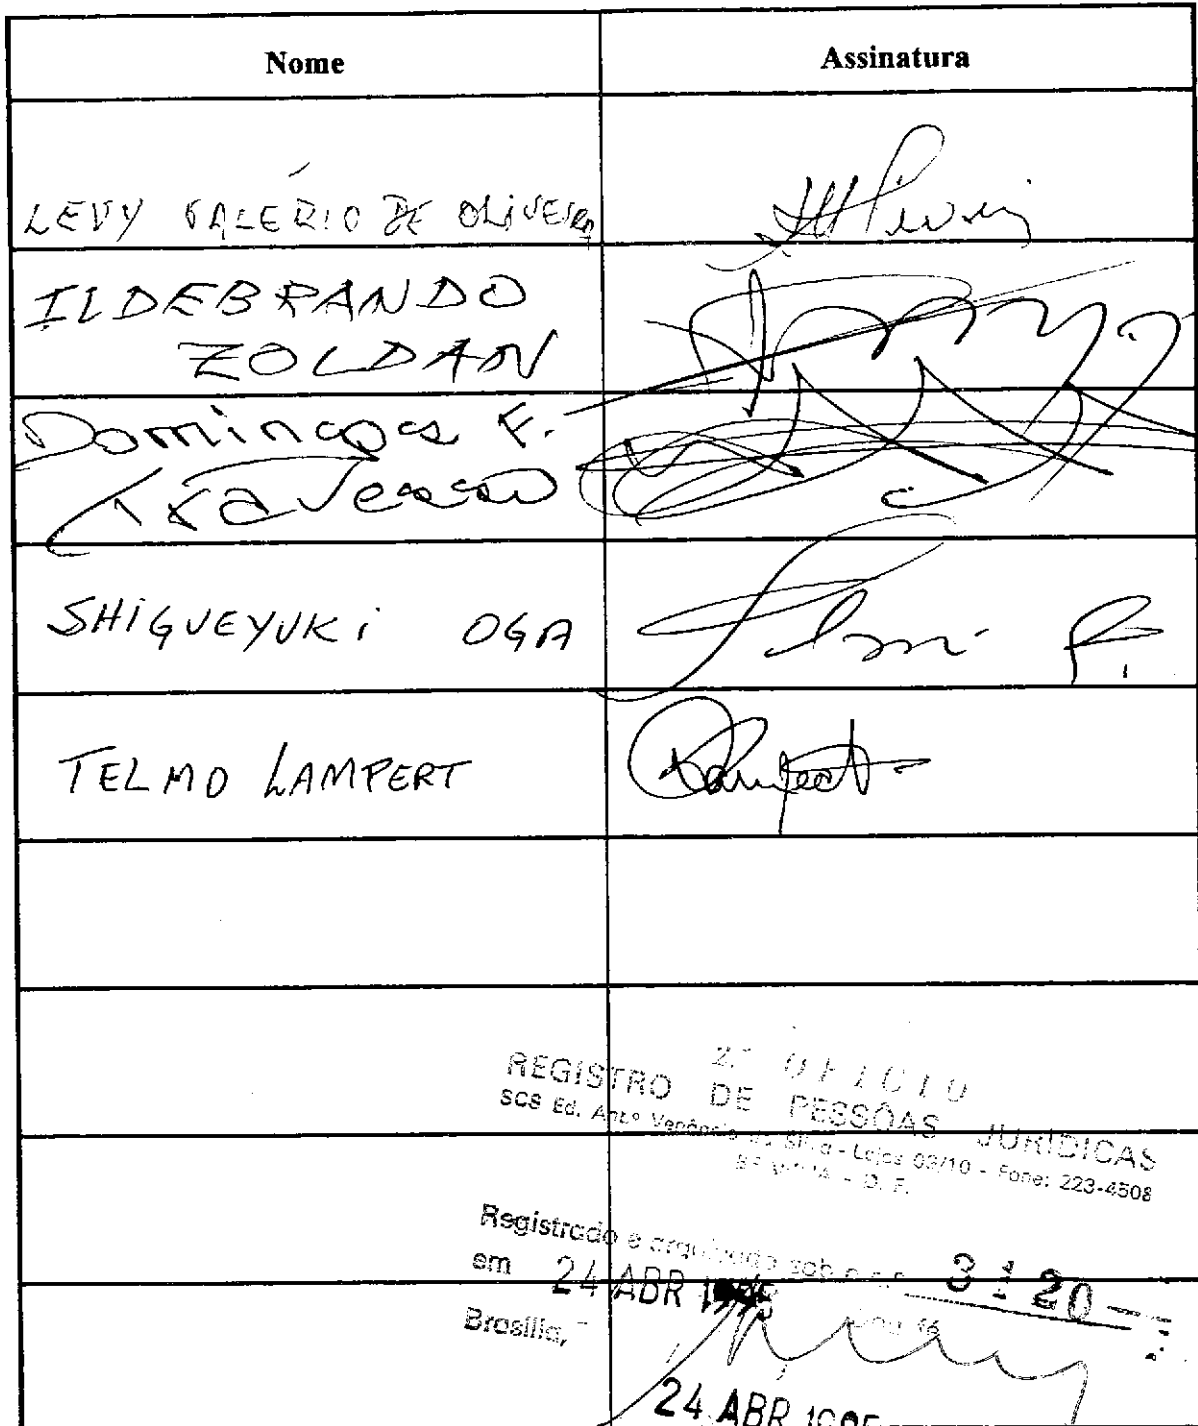 Nome Assinatura
LEVY VALÉRIO DE OLIVEIRA
ILDEBRANDO
ZOLDAN
Domingos F.
Travesso
SHIGUEYUKI OGA
TELMO LAMPERT
2º OFICIO
REGISTRO DE PESSÔAS JURÍDICAS
SCS Ed. Antº Venâncio da Silva - Lojas 09/10 - Fone: 223-4508
BRASILIA - D. F.
Registrado e arquivado sob o n.º 3120
em 24 ABR
Brasília,
24 ABR